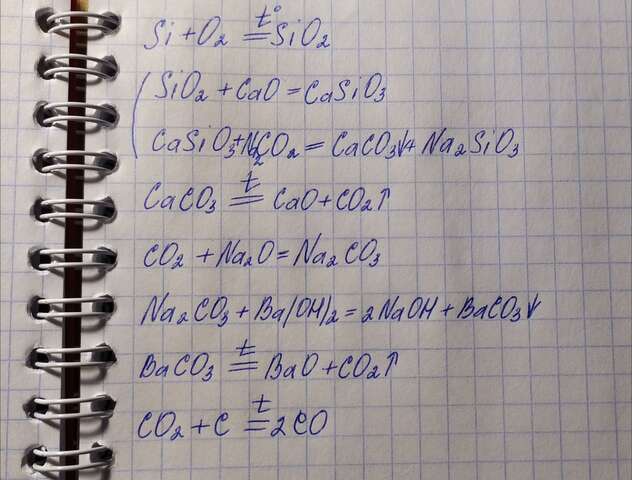 Si + O₂ =t°= SiO₂
SiO₂ + CaO = CaSiO₃
CaSiO₃ + Na₂CO₂ = CaCO₃↓ + Na₂SiO₃
CaCO₃ =t= CaO + CO₂↑
CO₂ + Na₂O = Na₂CO₃
Na₂CO₃ + Ba(OH)₂ = 2NaOH + BaCO₃↓
BaCO₃ =t= BaO + CO₂↑
CO₂ + C =t= 2CO